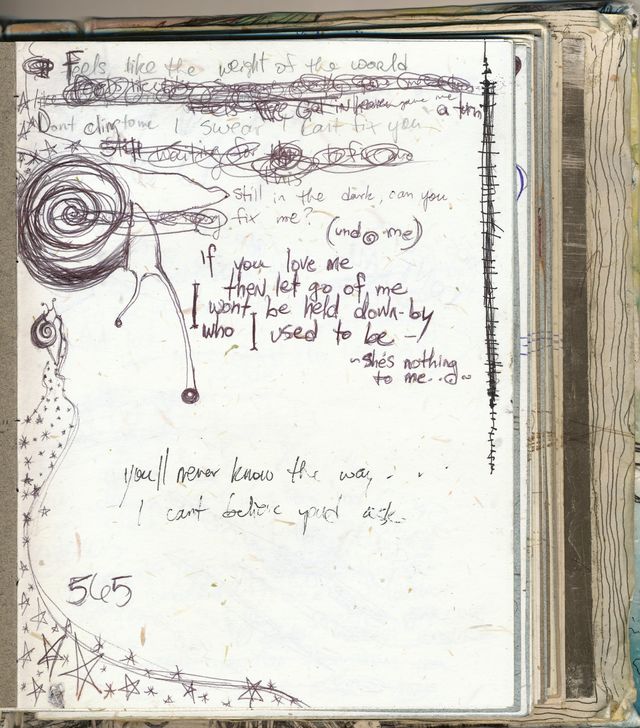 Feels like the weight of the world
like God in heaven gave me a turn
Dont cling to me I swear I cant fix you
Still in the dark, can you
fix me?
(undo me)
if you love me
then let go of me
I wont be held down by
who I used to be -
~ shes nothing
to me...
you'll never know the way...
I can't believe you'd ask
565